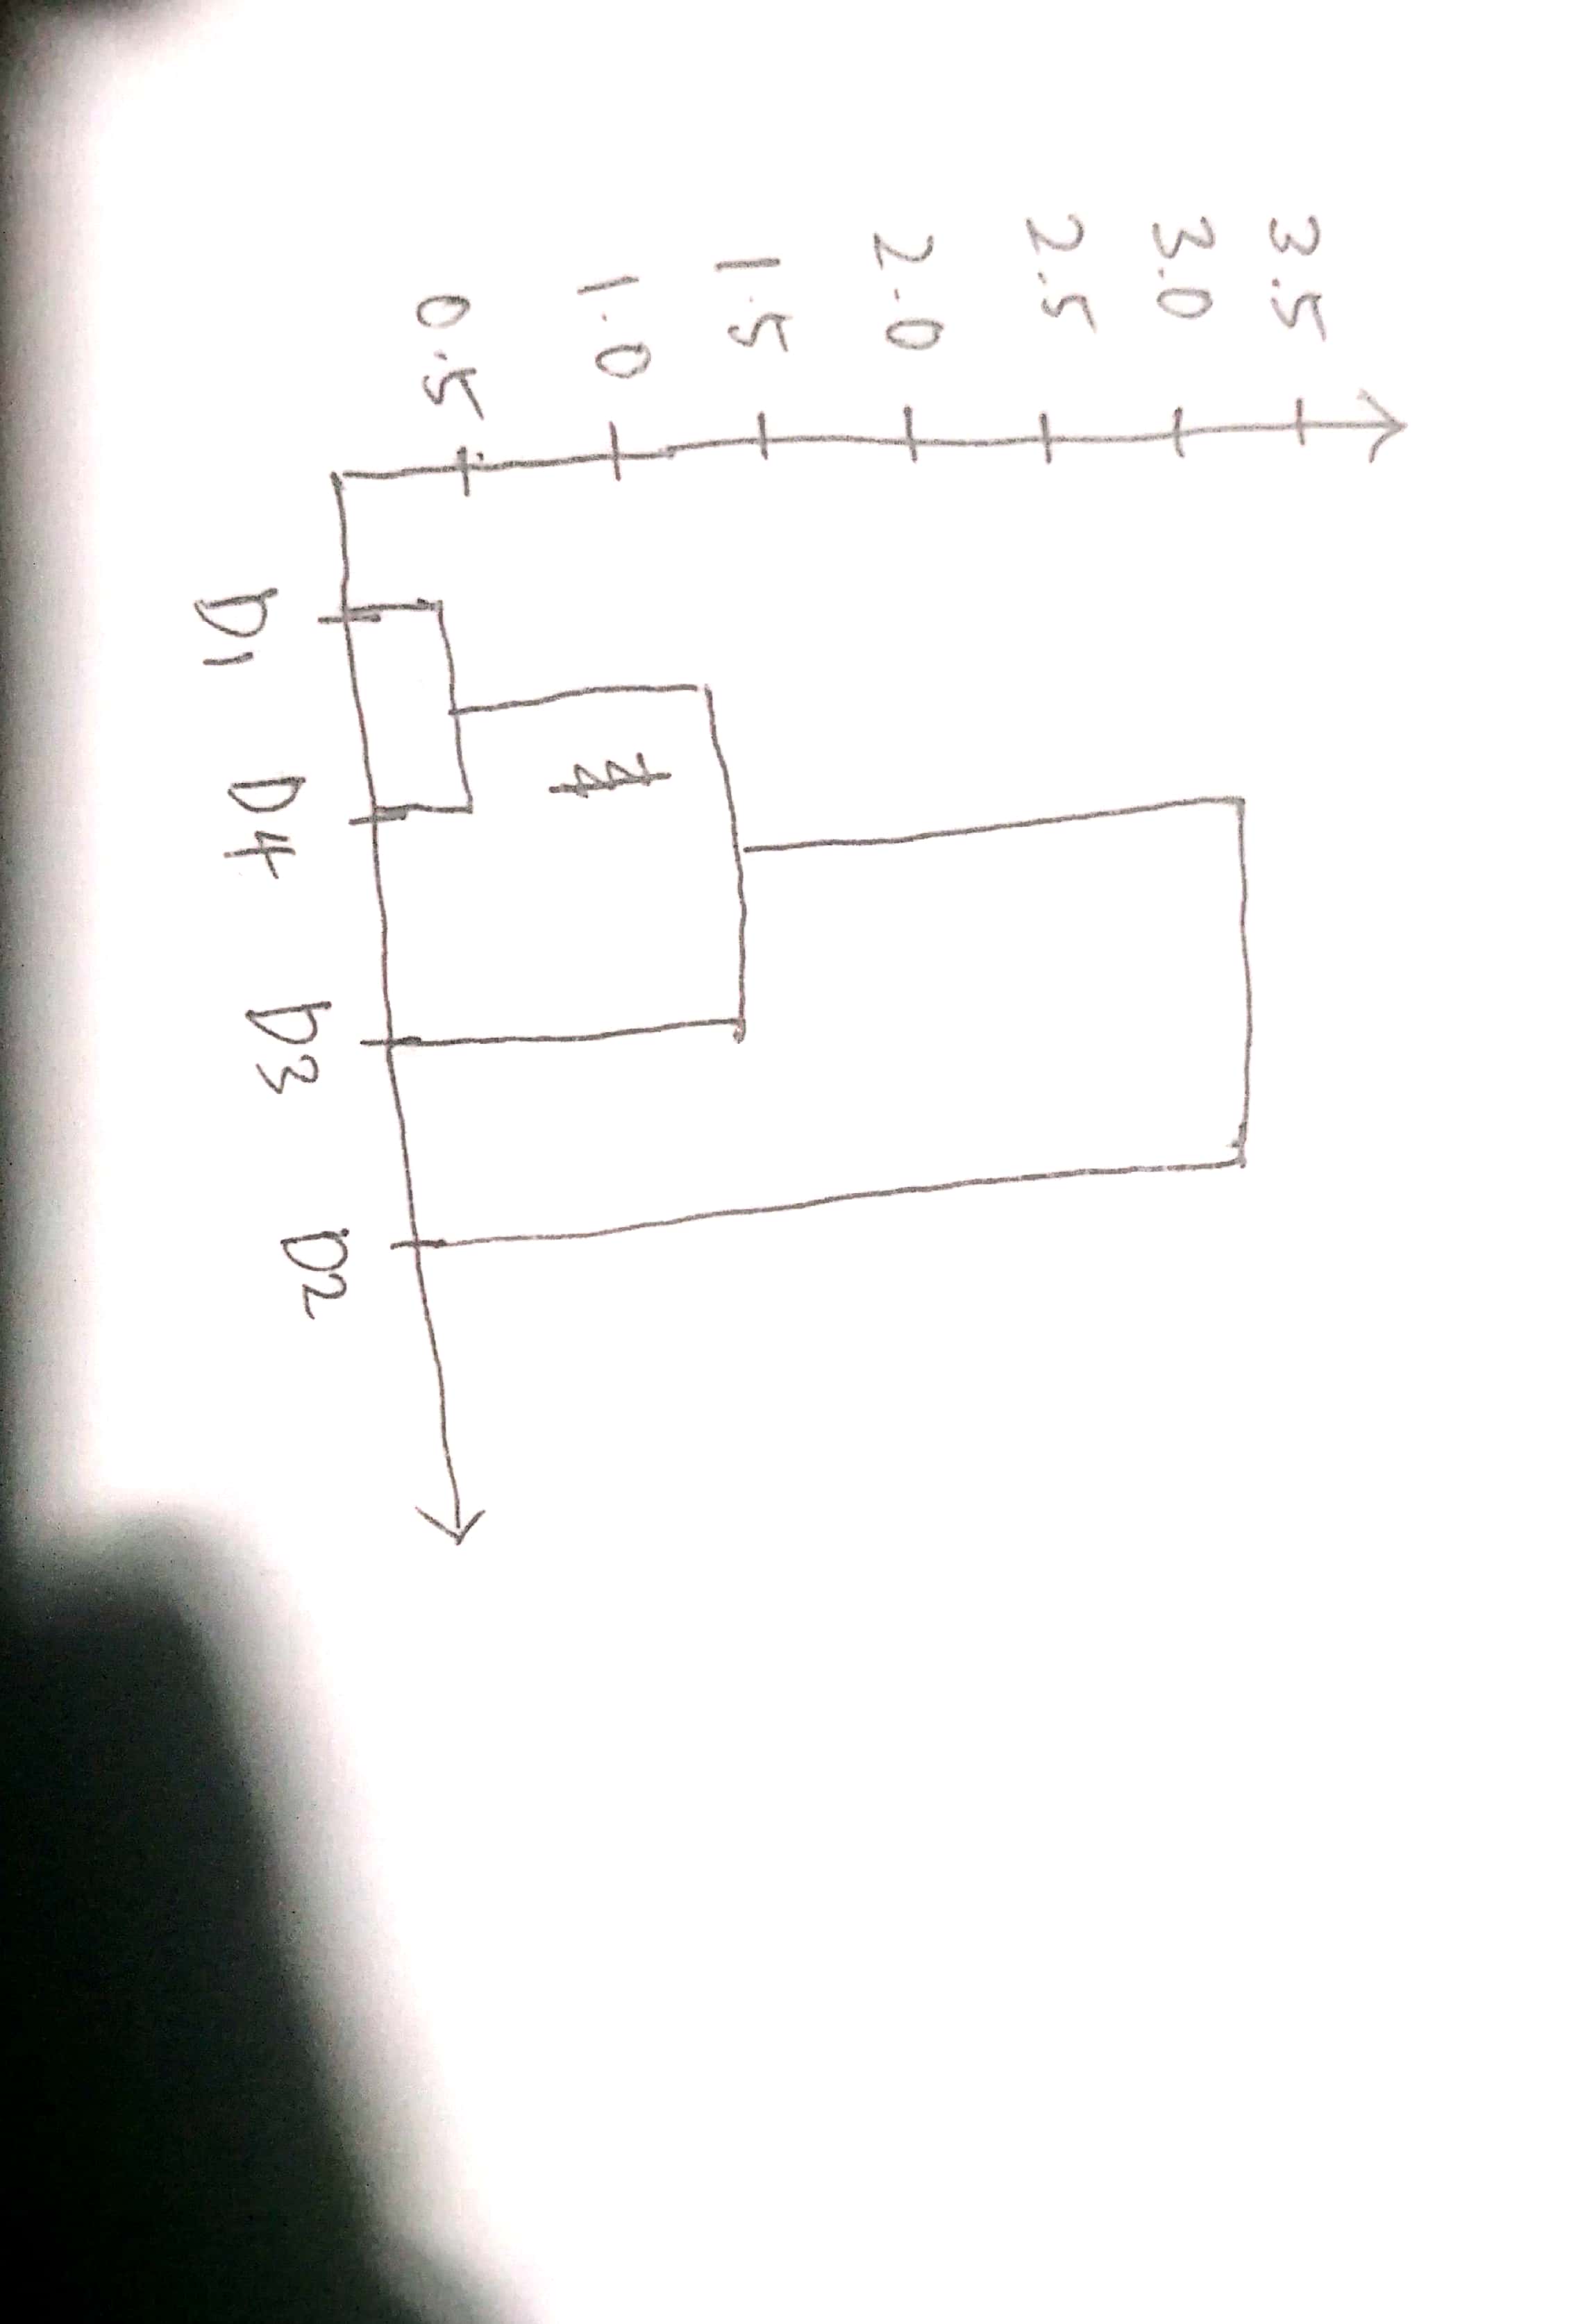 3.5
3.0
2.5
2.0
1.5
1.0
0.5
D1 D4 D3 D2